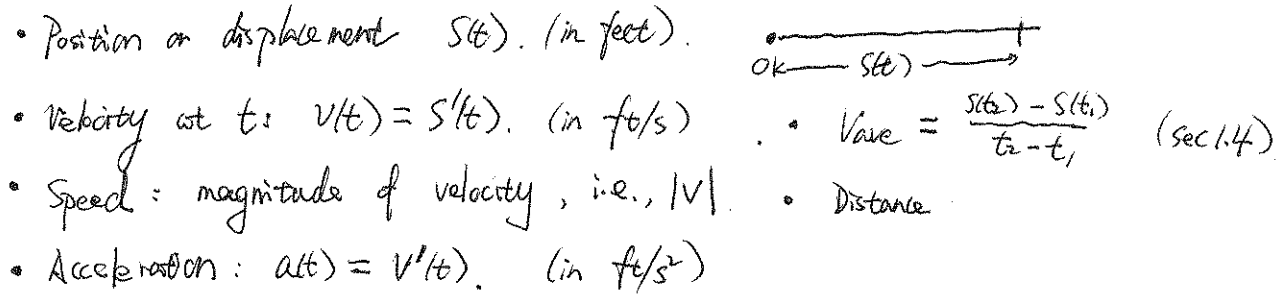 • Position or displacement S(t). (in feet).
0 S(t)
• Velocity at t: V(t) = S'(t). (in ft/s). • Vave = (S(t₂) - S(t₁))/(t₂ - t₁) (sec 1.4)
• Speed : magnitude of velocity, i.e., |V|. • Distance
• Acceleration : a(t) = V'(t). (in ft/s²)